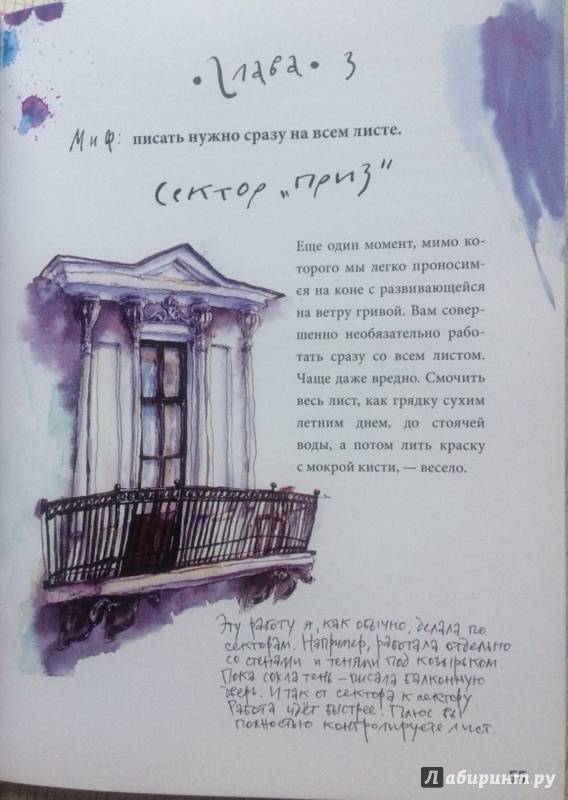 • Глава • 3
Миф: писать нужно сразу на всем листе.
Сектор „приз"
Еще один момент, мимо ко-
торого мы легко проносим-
ся на коне с развивающейся
на ветру гривой. Вам совер-
шенно необязательно рабо-
тать сразу со всем листом.
Чаще даже вредно. Смочить
весь лист, как грядку сухим
летним днем, до стоячей
воды, а потом лить краску
с мокрой кисти, — весело.
Эту работу я, как обычно, делала по
секторам. Например, работала отдельно
со стенами и тенями под козырьком.
Пока сохла тень – писала балконную
дверь. И так от сектора к сектору
Работа идёт быстрее! Плюс вы
полностью контролируете лист.
55
Лабиринт.ру